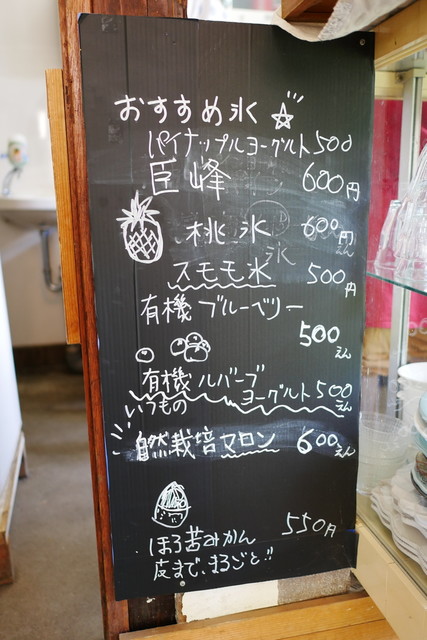 おすすめ氷☆
パイナップルヨーグルト500
臣峰 600円
桃氷 600円
えん
氷
スモモ氷 500円
有機ブルーベリー
500えん
有機ルバーブ
ヨーグルト500えん
いつもの
自然栽培マロン 600えん
ほろ苦みかん 550円
皮まで、まるごと!!